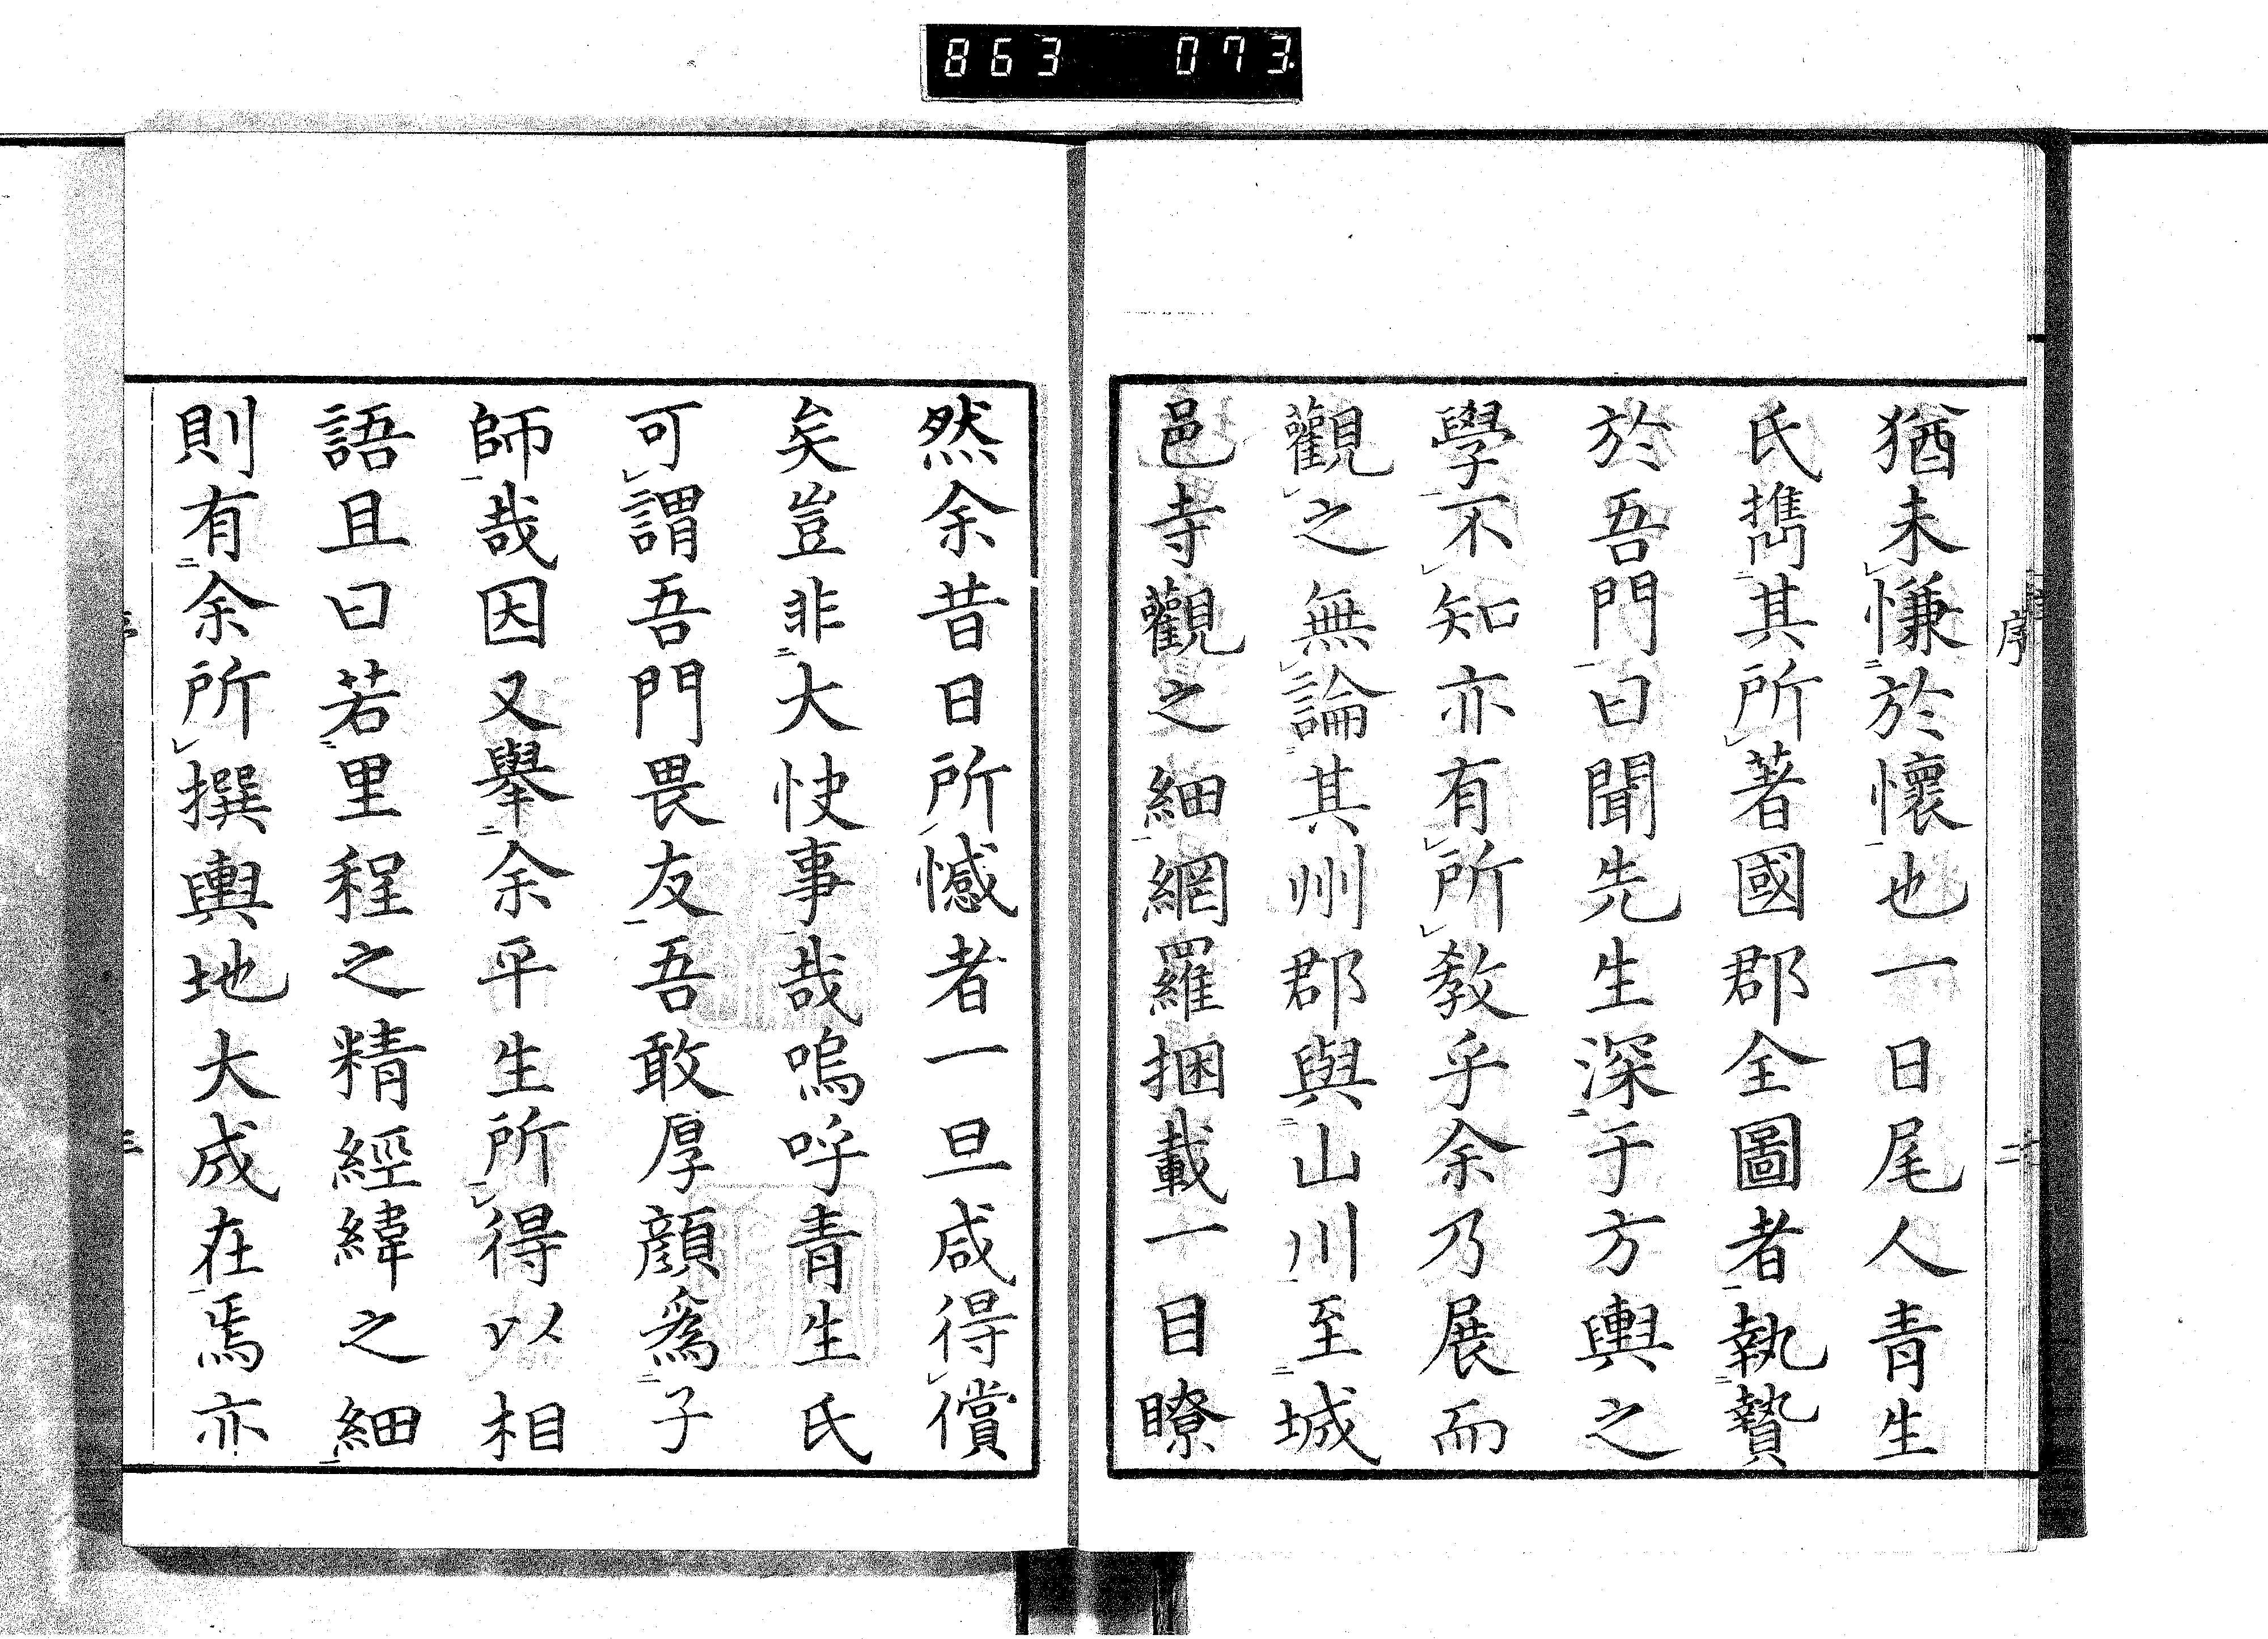 863 073
序
二
猶未慊於懷也一日尾人青生
氏携其所著國郡全圖者執贄
於吾門曰聞先生深于方輿之
學不知亦有所教乎余乃展而
觀之無論其州郡與山川至城
邑寺觀之細網羅捆載一目瞭
然余昔日所憾者一旦咸得償
矣豈非大快事哉嗚呼青生氏
可謂吾門畏友吾敢厚顔爲子
師哉因又舉余平生所得以相
語且曰若里程之精經緯之細
則有余所撰輿地大成在焉亦
三